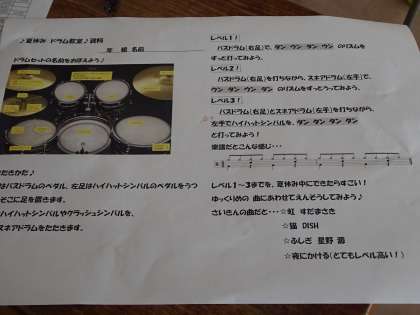 ♪夏休み ドラム教室♪資料
年 組 名前
ドラムセットの名前をおぼえよう♪
たたきかた♪
はバスドラムのペダル、左足はハイハットシンバルのペダルをつ
そこに足を置きます。
ハイハットシンバルやクラッシュシンバルを、
スネアドラムをたたきます。
レベル1!
バスドラム(右足)で、ダン ウン ダン ウン のリズムを
ずっと打ってみよう。
レベル2!
バスドラム(右足)を打ちながら、スネアドラム(左手)で、
ウン ダン ウン ダン のリズムをずっとうってみよう。
レベル3!
バスドラム(右足)とスネアドラム(左手)を打ちながら、
右手でハイハットシンバルを、ダン ダン ダン ダン
と打ってみよう!
楽譜だとこんな感じ・・・
レベル1~3までを、夏休み中にできたらすごい!
ゆっくりめの 曲にあわせてえんそうしてみよう♪
さいきんの曲だと・・・☆虹 すだまさき
☆猫 DISH
☆ふしぎ 星野 源
☆夜にかける(とてもレベル高い!)